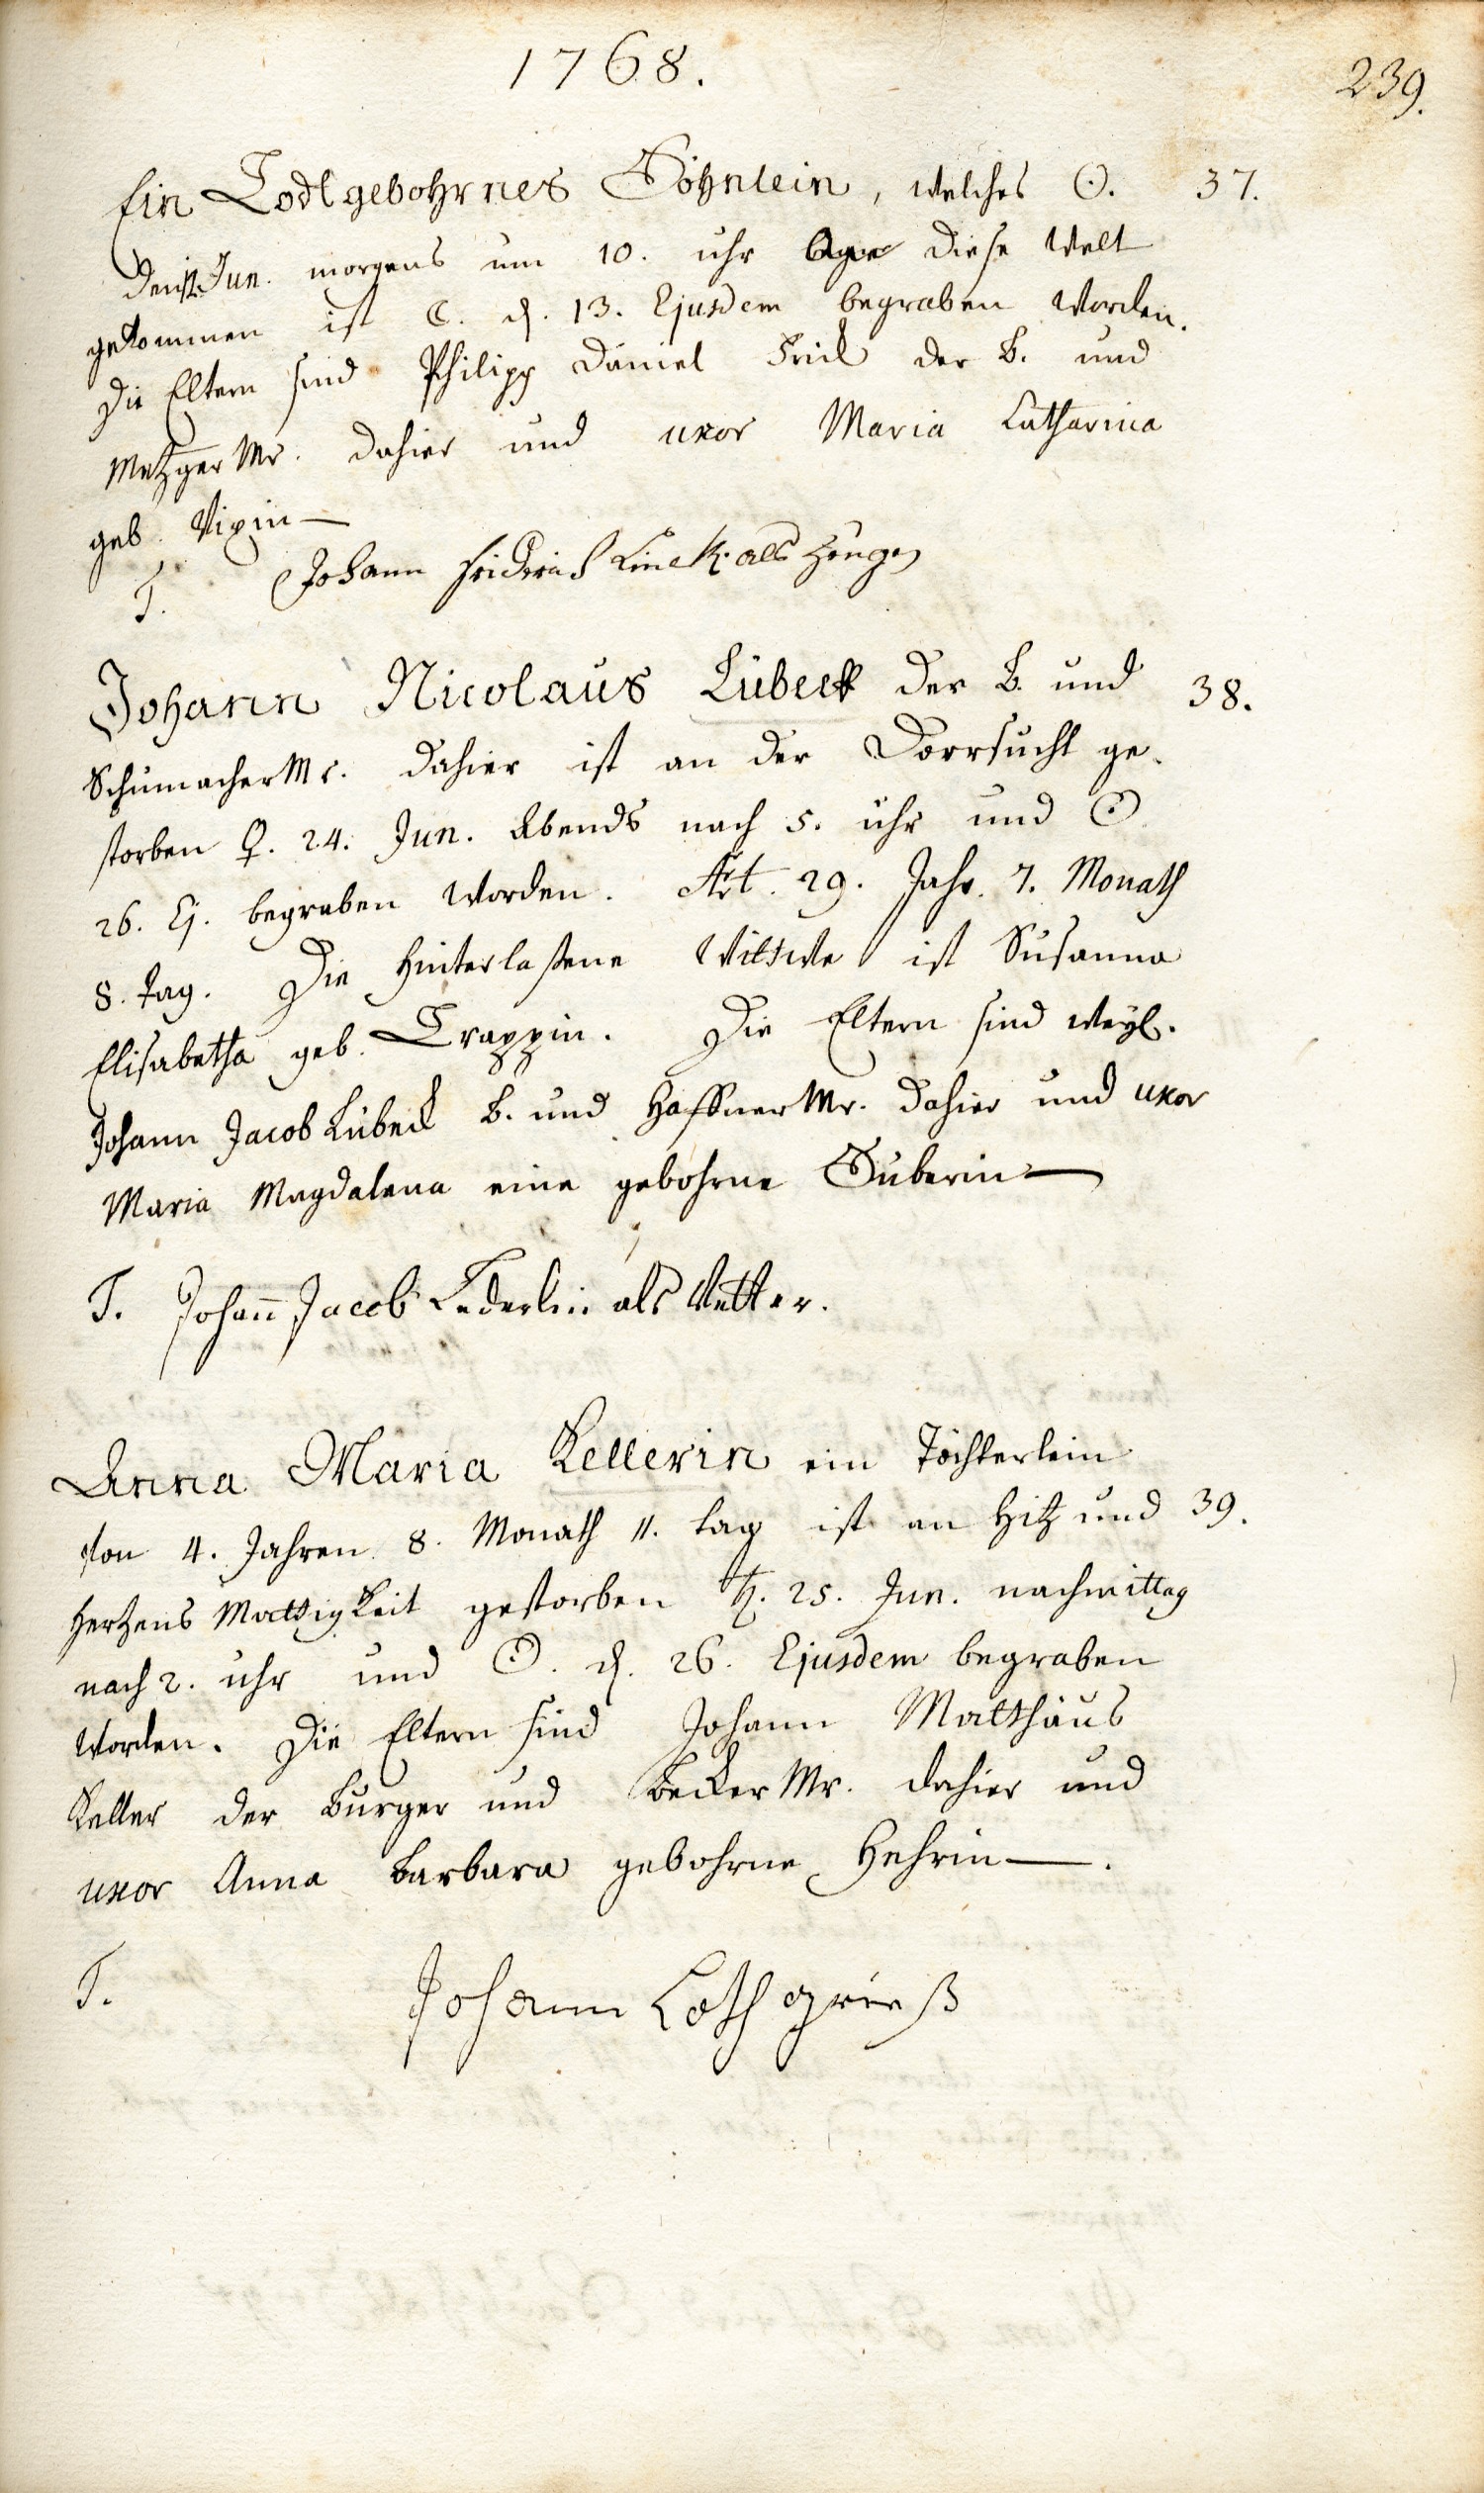 1768.
239.
Ein Todtgebohrnes Söhnlein, welches ☉. 37.
den 12. Jun. morgens um 10. uhr diese Welt
gekommen ist ☾. d. 13. Ejusdem begraben worden.
Die Eltern sind Philipp Daniel Frick der B. und
Metzger Mr. dahier und uxor Maria Catharina
geb. Vixin —
T. Johann Friderich Linck als Zeuge
Johann Nicolaus Lübeck der B. und 38.
Schumacher Mr. dahier ist an der Dorrsucht ge-
storben ♀. 24. Jun. Abends nach 5. uhr und ☉
26. Ej. begraben worden. Æt. 29. Jahr. 7. Monath
8. Tag. Die hinterlaßene Wittwe ist Susanna
Elisabetha geb. Trappin. Die Eltern sind weyl.
Johann Jacob Lübeck B. und Haffner Mr. dahier und uxor
Maria Magdalena eine gebohrne Suberin —
T. Johañ Jacob Lederlin als Vetter.
Anna Maria Kellerin ein Töchterlein
von 4. Jahren 8. Monath 11. tag ist an Hitz und 39.
Hertzens Mattigkeit gestorben ♄. 25. Jun. nachmittag
nach 2. uhr und ☉. d. 26. Ejusdem begraben
worden. Die Eltern sind Johann Matthäus
Keller der Burger und Becker Mr. dahier und
uxor Anna Barbara gebohrne Hehrin —.
T. Johann Loth grieß